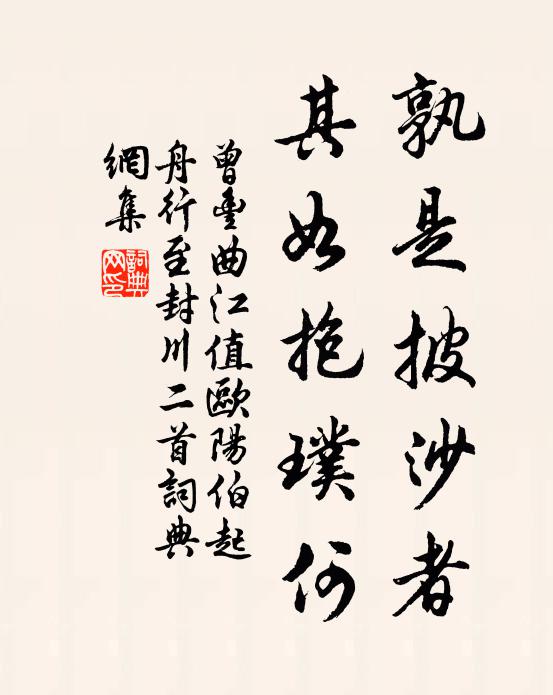 孰是披沙者
其如抱璞何
曾豐曲江值歐陽伯起
舟行至封川二首詞典
網集
詞典
网印